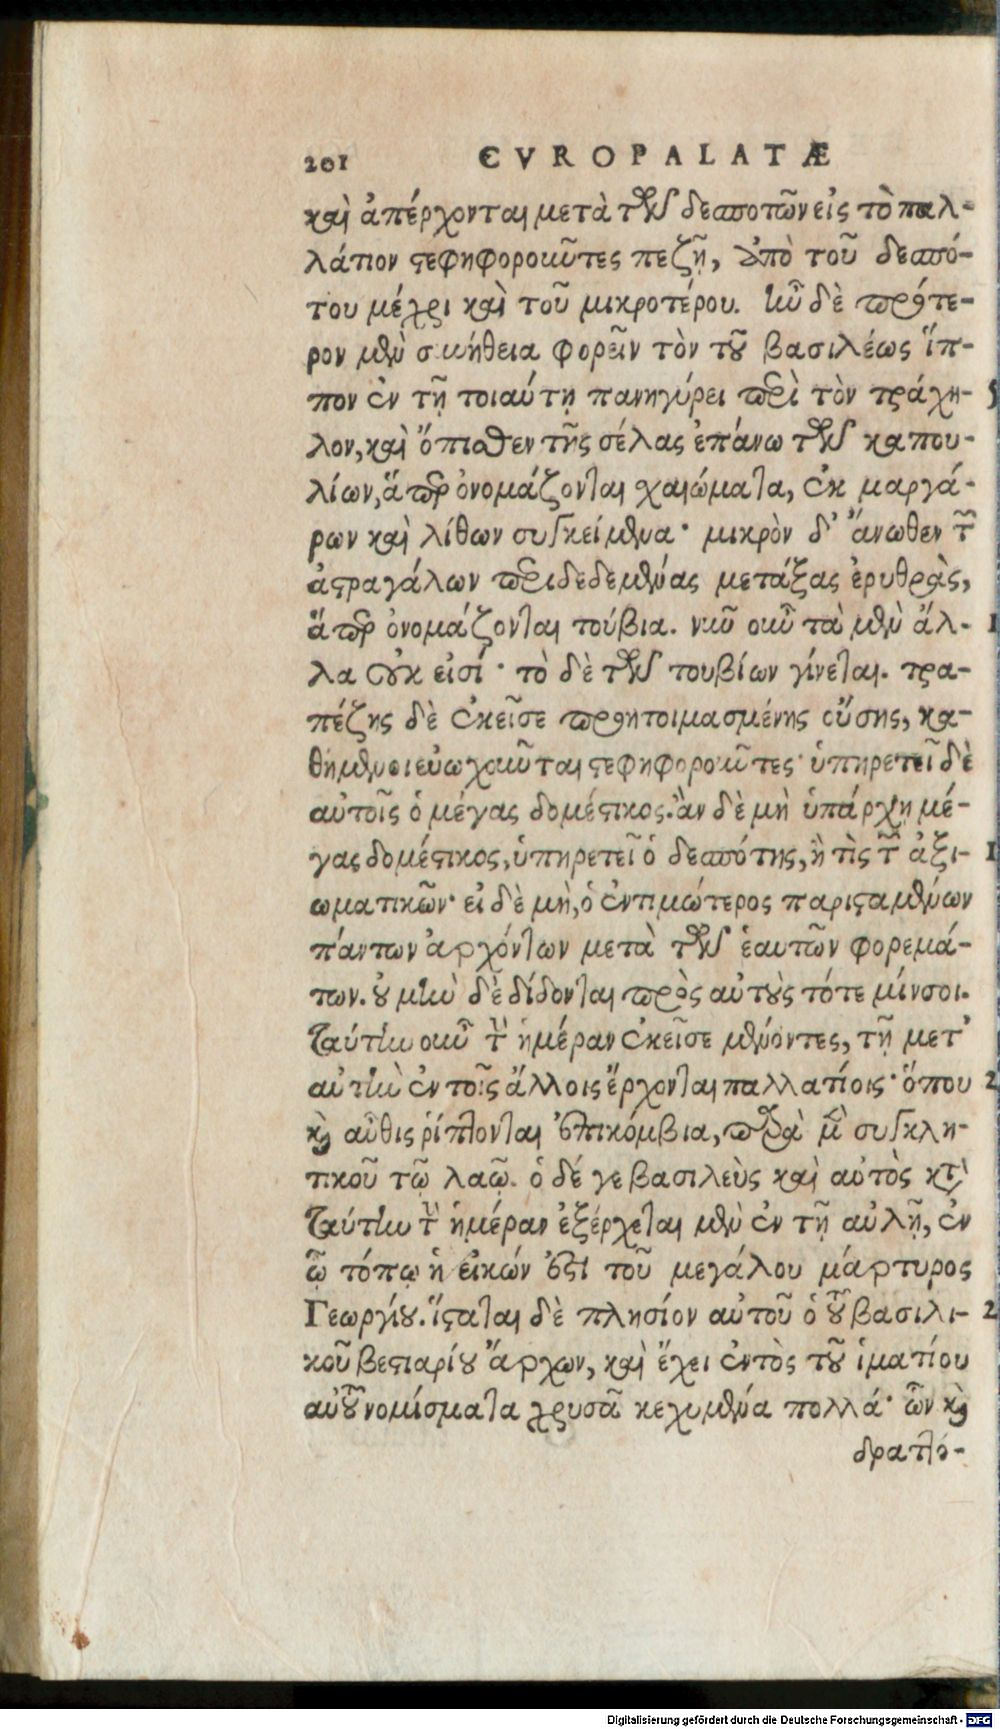 201 CVROPALATÆ
καὶ ἀπέρχονται μετὰ τῶν δεσποτῶν εἰς τὸ παλ-
λάτιον στεφηφοροῦντες πεζῇ, ἀπὸ τοῦ δεσπό-
του μέχρι καὶ τοῦ μικροτέρου. ἦν δὲ πρότε-
ρον μὲν συνήθεια φορεῖν τὸν τοῦ βασιλέως ἵπ-
πον ἐν τῇ τοιαύτῃ πανηγύρει περὶ τὸν τράχη- 5
λον, καὶ ὄπισθεν τῆς σέλας ἐπάνω τῶν καπου-
λίων, ἅπερ ὀνομάζονται χαιώματα, ἐκ μαργά-
ρων καὶ λίθων συγκείμενα· μικρὸν δ' ἄνωθεν τῶν
ἀστραγάλων περιδεδεμένας μετάξας ἐρυθρὰς,
ἅπερ ὀνομάζονται τούβια. νῦν οὖν τὰ μὲν ἄλ- 1
λα οὐκ εἰσί· τὸ δὲ τῶν τουβίων γίνεται. τρα-
πέζης δὲ ἐκεῖσε προητοιμασμένης οὔσης, κα-
θήμενοι εὐωχοῦνται στεφηφοροῦντες· ὑπηρετεῖ δὲ
αὐτοῖς ὁ μέγας δομέστικος. ἂν δὲ μὴ ὑπάρχῃ μέ-
γας δομέστικος, ὑπηρετεῖ ὁ δεσπότης, ἤ τὶς τῶν ἀξι- 1
ωματικῶν· εἰ δὲ μὴ, ὁ ἐντιμώτερος παρισταμένων
πάντων ἀρχόντων μετὰ τῶν ἑαυτῶν φορεμά-
των. οὐ μὴν δὲ δίδονται πρὸς αὐτοὺς τότε μίνσοι.
ταύτην οὖν τὴν ἡμέραν ἐκεῖσε μένοντες, τῇ μετ'
αὐτὴν ἐν τοῖς ἄλλοις ἔρχονται παλλατίοις· ὅπου 2
καὶ αὖθις ῥίπτονται ἐπικόμβια, παρὰ μὲν συγκλη-
τικοῦ τῷ λαῷ. ὁ δέ γε βασιλεὺς καὶ αὐτὸς κατὰ
ταύτην τὴν ἡμέραν ἐξέρχεται μὲν ἐν τῇ αὐλῇ, ἐν
ᾧ τόπῳ ἡ εἰκών ἐστι τοῦ μεγάλου μάρτυρος
Γεωργίου. ἵσταται δὲ πλησίον αὐτοῦ ὁ τοῦ βασιλι- 2
κοῦ βεστιαρίου ἄρχων, καὶ ἔχει ἐντὸς τοῦ ἱματίου
αὐτοῦ νομίσματα χρυσᾶ κεχυμένα πολλά· ὧν καὶ
δραττό-
Digitalisierung gefördert durch die Deutsche Forschungsgemeinschaft - DFG